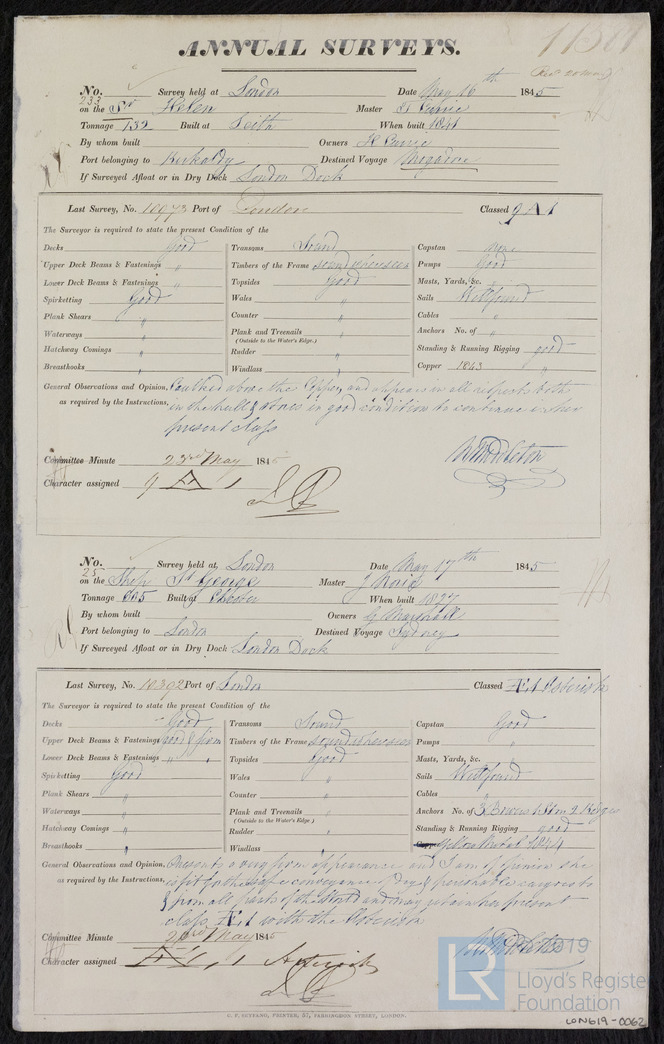 ANNUAL SURVEYS.
No. 233 Survey held at London Date May 16th 1845
on the Sr Helen Master H Currie
Tonnage 132 Built at Leith When built 1841
By whom built Owners H Currie
Port belonging to Kirkaldy Destined Voyage
If Surveyed Afloat or in Dry Dock London Dock
Last Survey, No. 10973 Port of London Classed 9 A 1
The Surveyor is required to state the present Condition of the
Decks good Transoms Sound Capstan None
Upper Deck Beams & Fastenings " Timbers of the Frame sound where seen Pumps Good
Lower Deck Beams & Fastenings " Topsides good Masts, Yards, &c. "
Spirketting Good Wales " Sails Well found
Plank Shears " Counter " Cables "
Waterways " Plank and Treenails " Anchors No. of "
(Outside to the Water's Edge.)
Hatchway Comings " Rudder " Standing & Running Rigging good
Breasthooks " Windlass " Copper 1843
General Observations and Opinion, Caulked above the Copper, and appears in all respects both
as required by the Instructions, in the hull & stores in good condition to continue in her
present class
Committee Minute 23rd May 1845
Character assigned 9 A 1
No. 25 Survey held at London Date May 17th 1845
on the Ship St George Master J
Tonnage 605 Built at Chester When built 1827
By whom built Owners G Marshall
Port belonging to London Destined Voyage Sydney
If Surveyed Afloat or in Dry Dock London Dock
Last Survey, No. 10392 Port of London Classed Æ 1 Asterisk
The Surveyor is required to state the present Condition of the
Decks Good Transoms Sound Capstan Good
Upper Deck Beams & Fastenings good & firm Timbers of the Frame sound where seen Pumps "
Lower Deck Beams & Fastenings " " Topsides Good Masts, Yards, &c. "
Spirketting Good Wales " Sails Well found
Plank Shears " Counter " Cables "
Waterways " Plank and Treenails " Anchors No. of 3 Bowers 1 Strm 2 Kedges
(Outside to the Water's Edge.)
Hatchway Comings " Rudder " Standing & Running Rigging good
Breasthooks " Windlass " Yellow Metal 1844
General Observations and Opinion, Presents a very firm appearance and I am of opinion she
as required by the Instructions, is fit for the safe conveyance of dry & perishable cargoes to
& from all parts of the World and may retain her present
class Æ 1 with the Asterisk
Committee Minute 23rd May 1845
Character assigned Æ 1 Asterisk
C. F. SEYFANG, PRINTER, 57, FARRINGDON STREET, LONDON.
LR
2019
Lloyd's Register
Foundation
LON619-0062